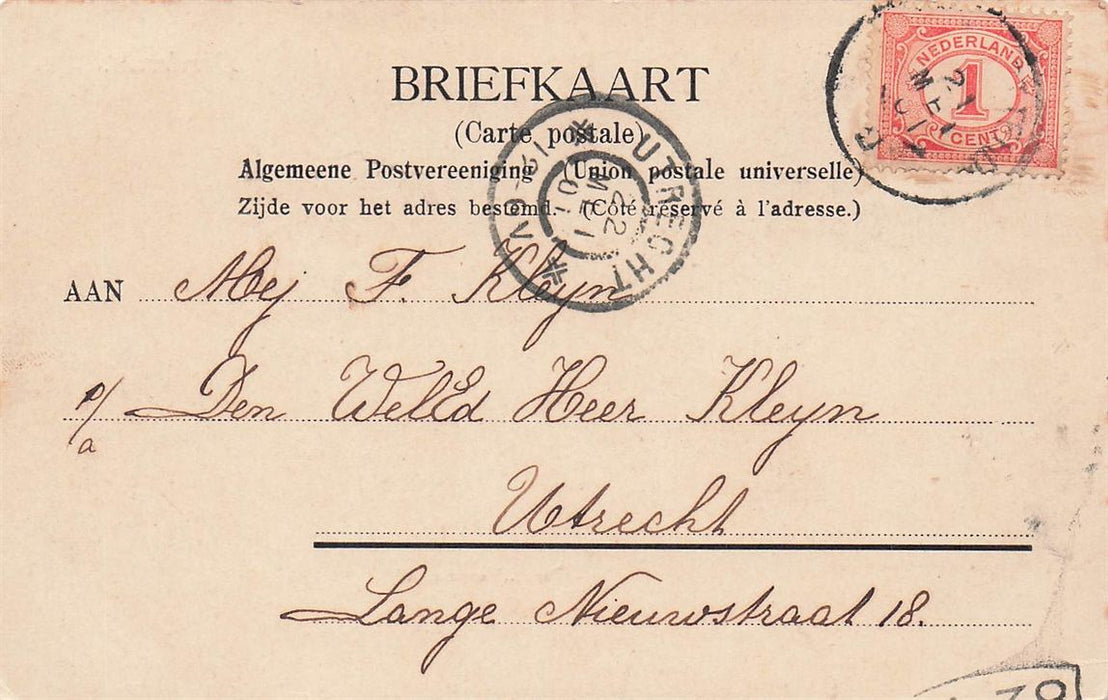 BRIEFKAART
(Carte postale)
Algemeene Postvereeniging (Union postale universelle)
Zijde voor het adres bestemd. - (Côté réservé à l'adresse.)
NEDERLAND
1
CENT
21
MEI
UTRECHT
22
MEI
01
AAN Mej F. Kleyn
p/a Den WelEd Heer Kleyn
Utrecht
Lange Nieuwstraat 18.